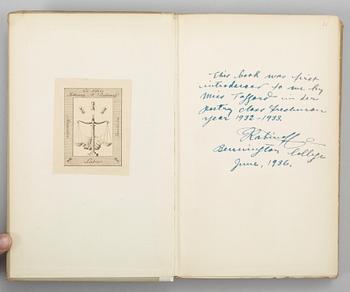 This book was first
introduced to me by
Miss Taggard in her
poetry class freshman
year 1932-1933.
Bennington College
June, 1936.
Labor